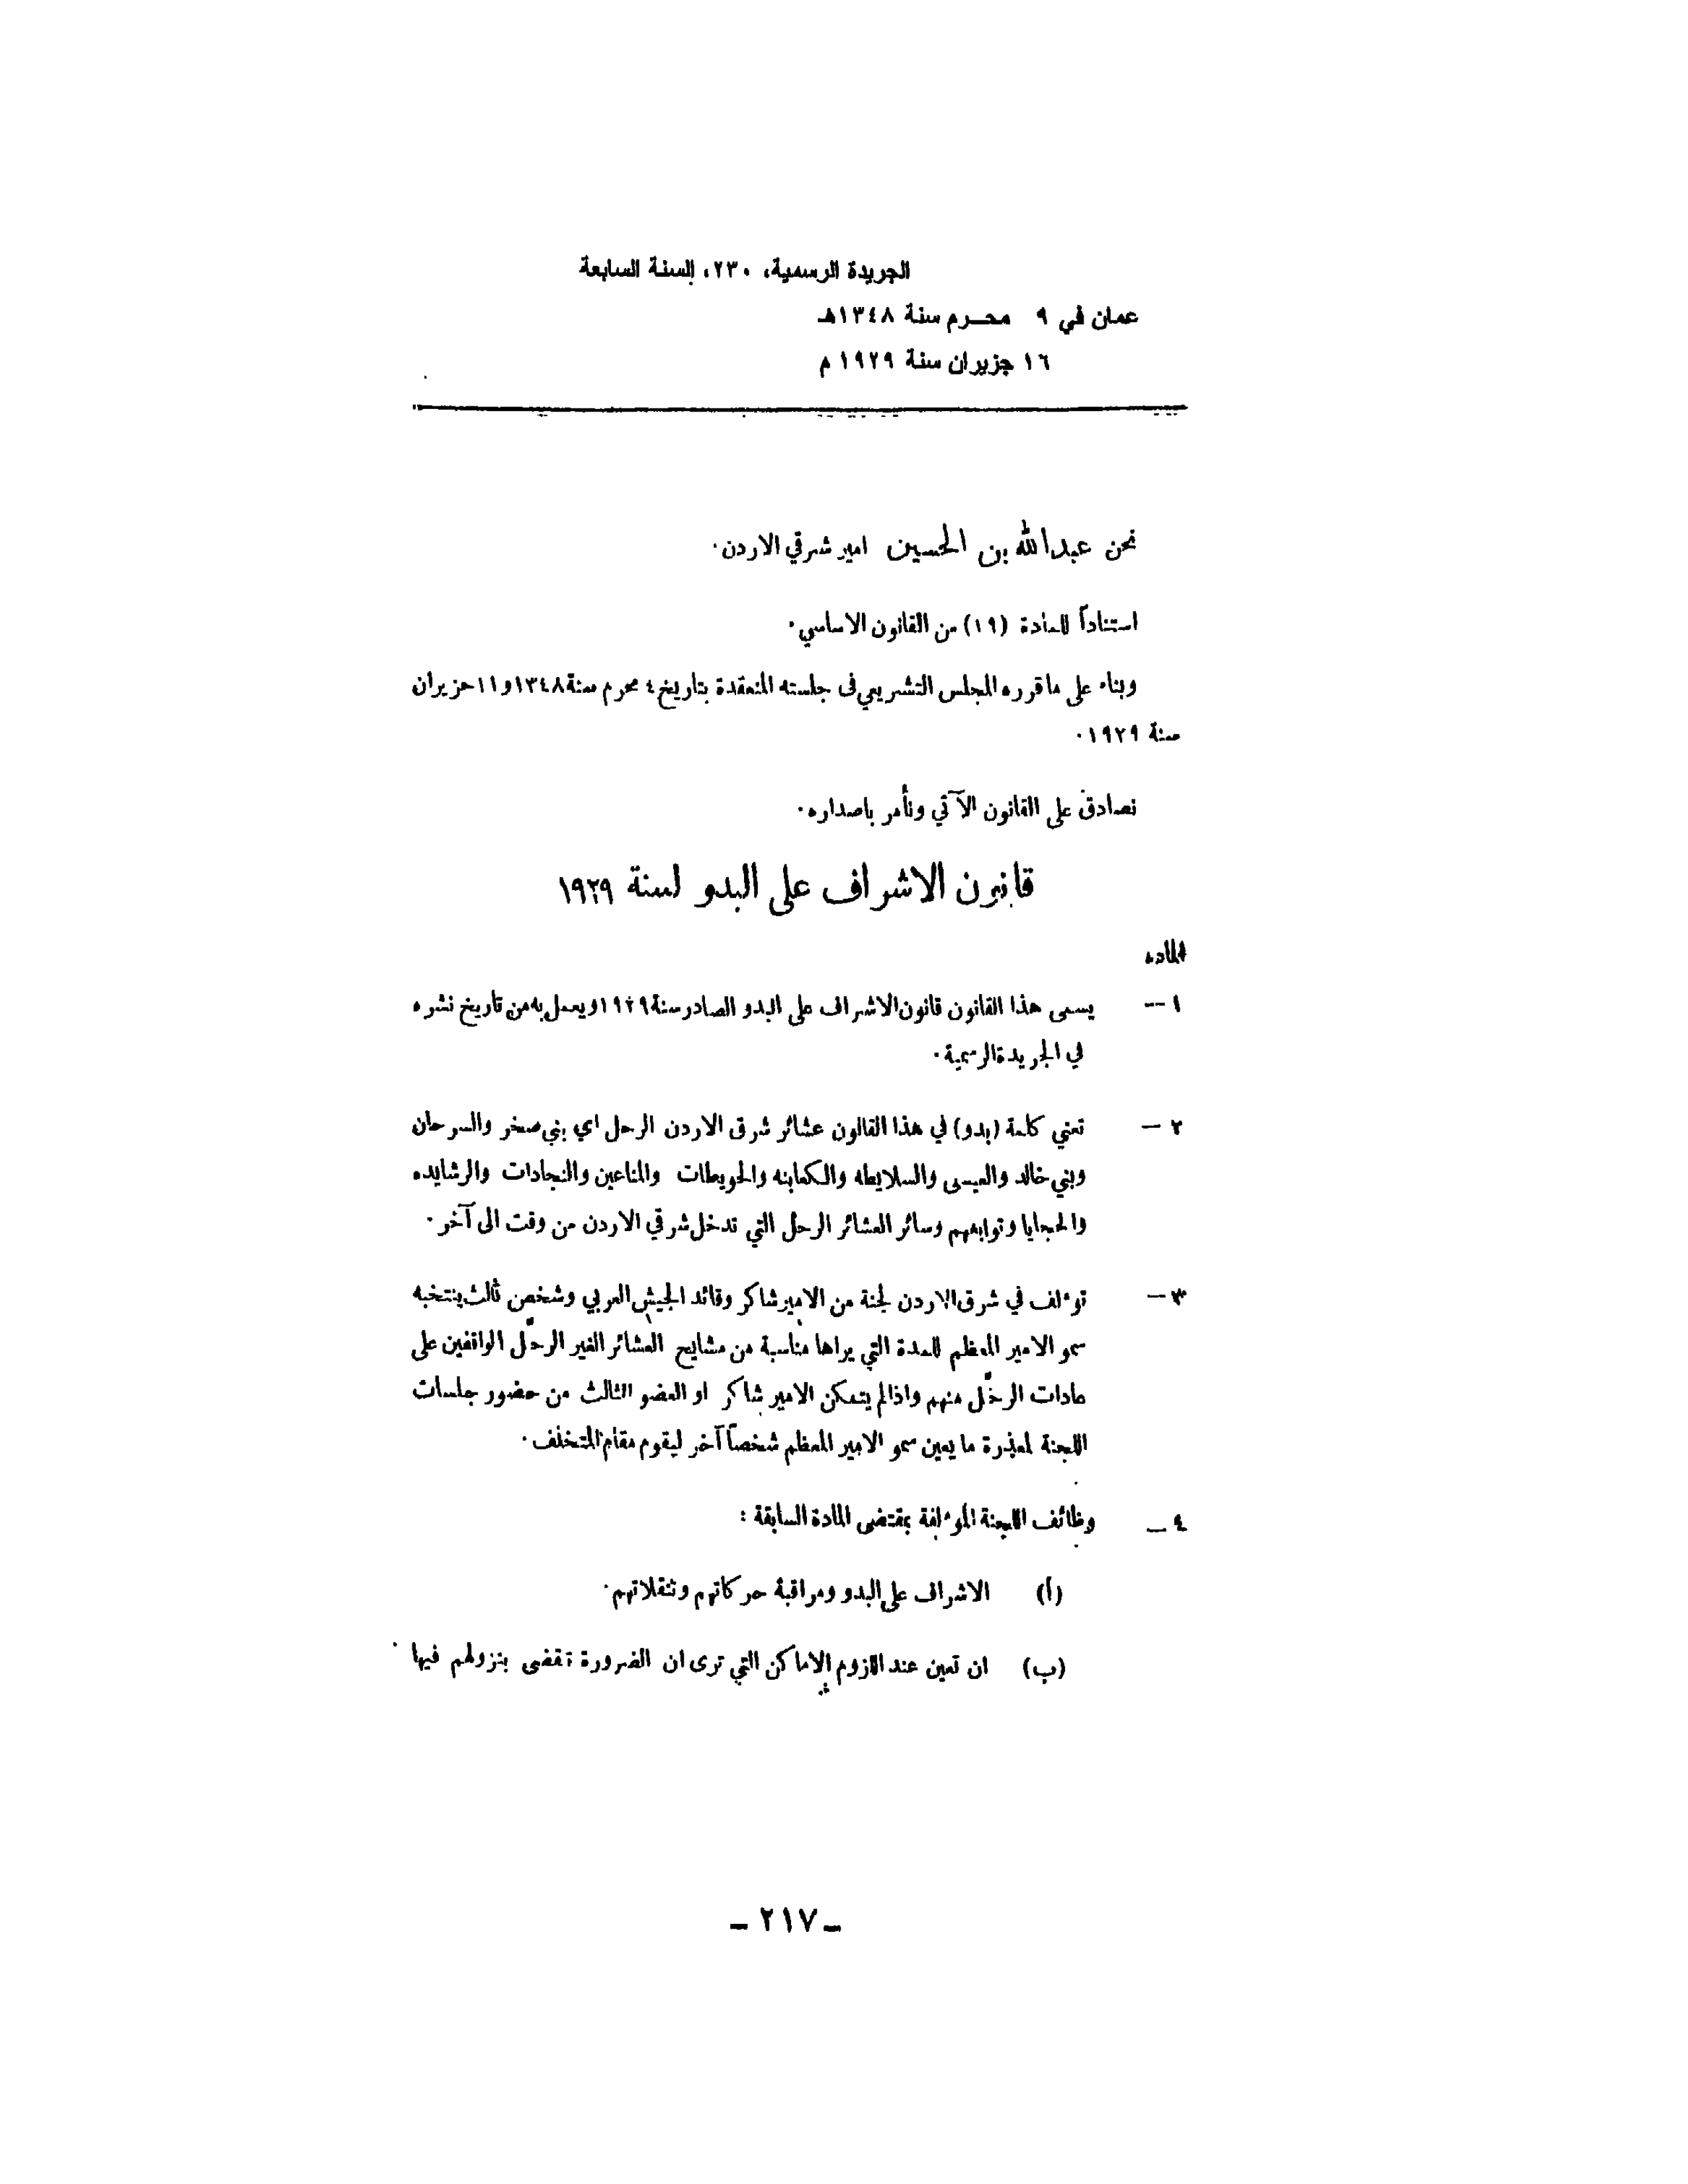 الجريدة الرسمية، ٢٣٠، السنة السابعة
عمان في ٩ محرم سنة ١٣٤٨هـ
١٦ حزيران سنة ١٩٢٩ م
نحن عبدالله بن الحسين امير شرقي الاردن.
استناداً للمادة (١٩) من القانون الاساسي.
وبناء على ماقرره المجلس التشريعي في جلسته المنعقدة بتاريخ ٤ محرم سنة ١٣٤٨ و١١ حزيران
سنة ١٩٢٩.
نصادق على القانون الآتي ونأمر باصداره.
قانون الاشراف على البدو لسنة ١٩٢٩
الماده
١ -- يسمى هذا القانون قانون الاشراف على البدو الصادر سنة ١٩٢٩ ويعمل به من تاريخ نشره
في الجريدة الرسمية.
٢ — تعني كلمة (بدو) في هذا القانون عشائر شرق الاردن الرحل اي بني صخر والسرحان
وبني خالد والعيسى والسلايطه والكعابنه والحويطات والمناعين والنجادات والرشايده
والحجايا وتوابعهم وسائر العشائر الرحل التي تدخل شرقي الاردن من وقت الى آخر.
٣ — تؤلف في شرق الاردن لجنة من الامير شاكر وقائد الجيش العربي وشخص ثالث ينتخبه
سمو الامير المعظم للمدة التي يراها مناسبة من مشايح العشائر الغير الرحّل الواقفين على
عادات الرحّل منهم واذالم يتمكن الامير شاكر او العضو الثالث من حضور جلسات
اللجنة لمعذرة ما يعين سمو الامير المعظم شخصاً آخر ليقوم مقام المتخلف.
٤ _ وظائف اللجنة المؤلفة بمقتضى المادة السابقة :
(أ) الاشراف على البدو ومراقبة حركاتهم وتنقلاتهم.
(ب) ان تعين عند اللزوم الاماكن التي ترى ان الضرورة تقضى بنزولهم فيها
ـ ٢١٧ ـ